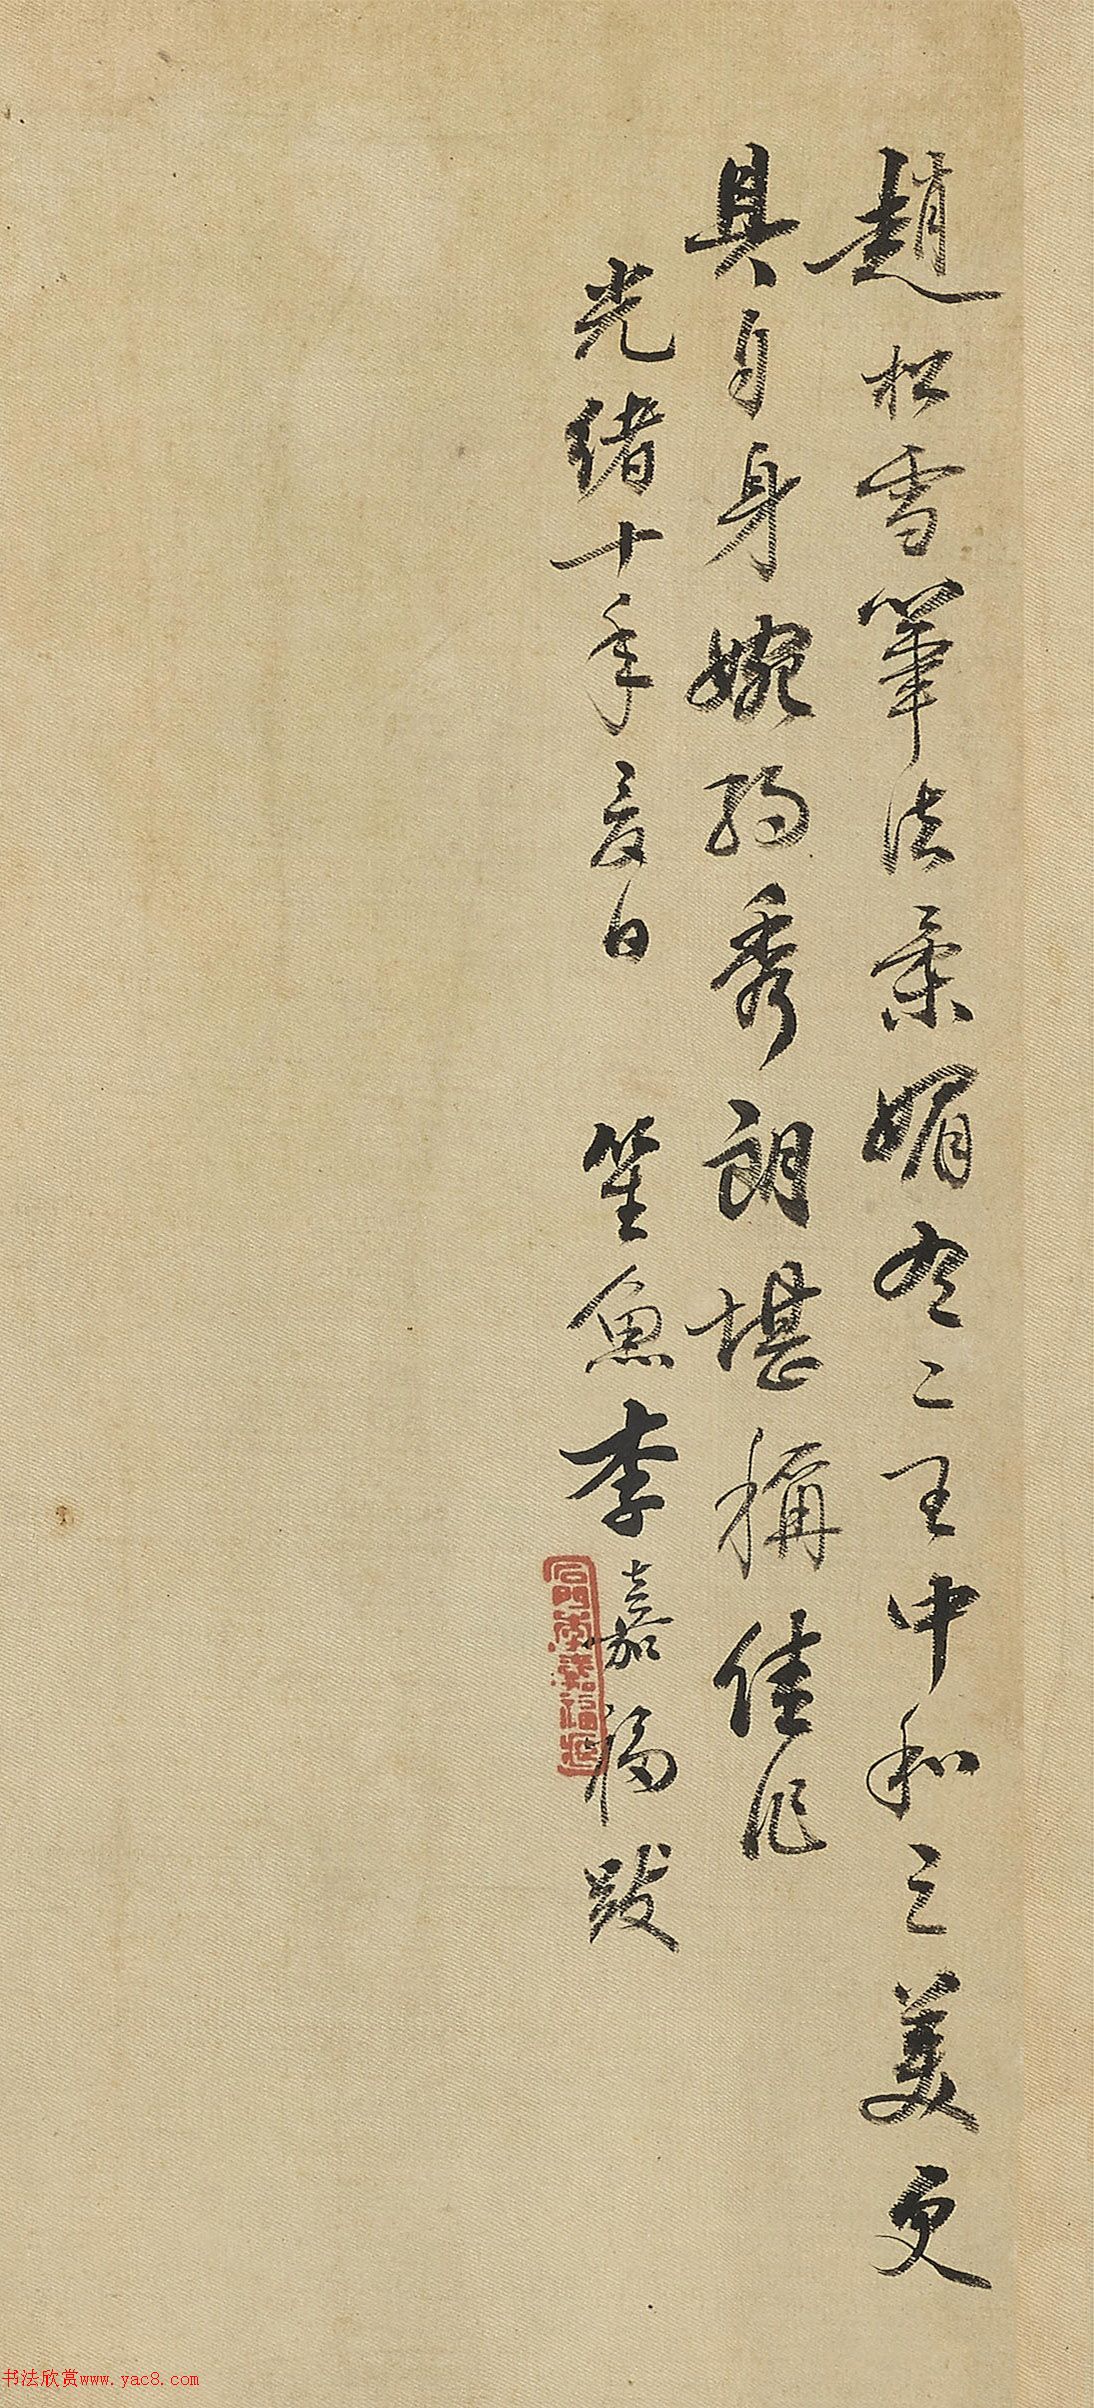 趙松雪筆法柔媚有二王中和之美更
具自身婉約秀朗堪稱佳作
光緒十年夏日 笙魚李嘉福跋
李嘉福
书法欣赏www.yac8.com